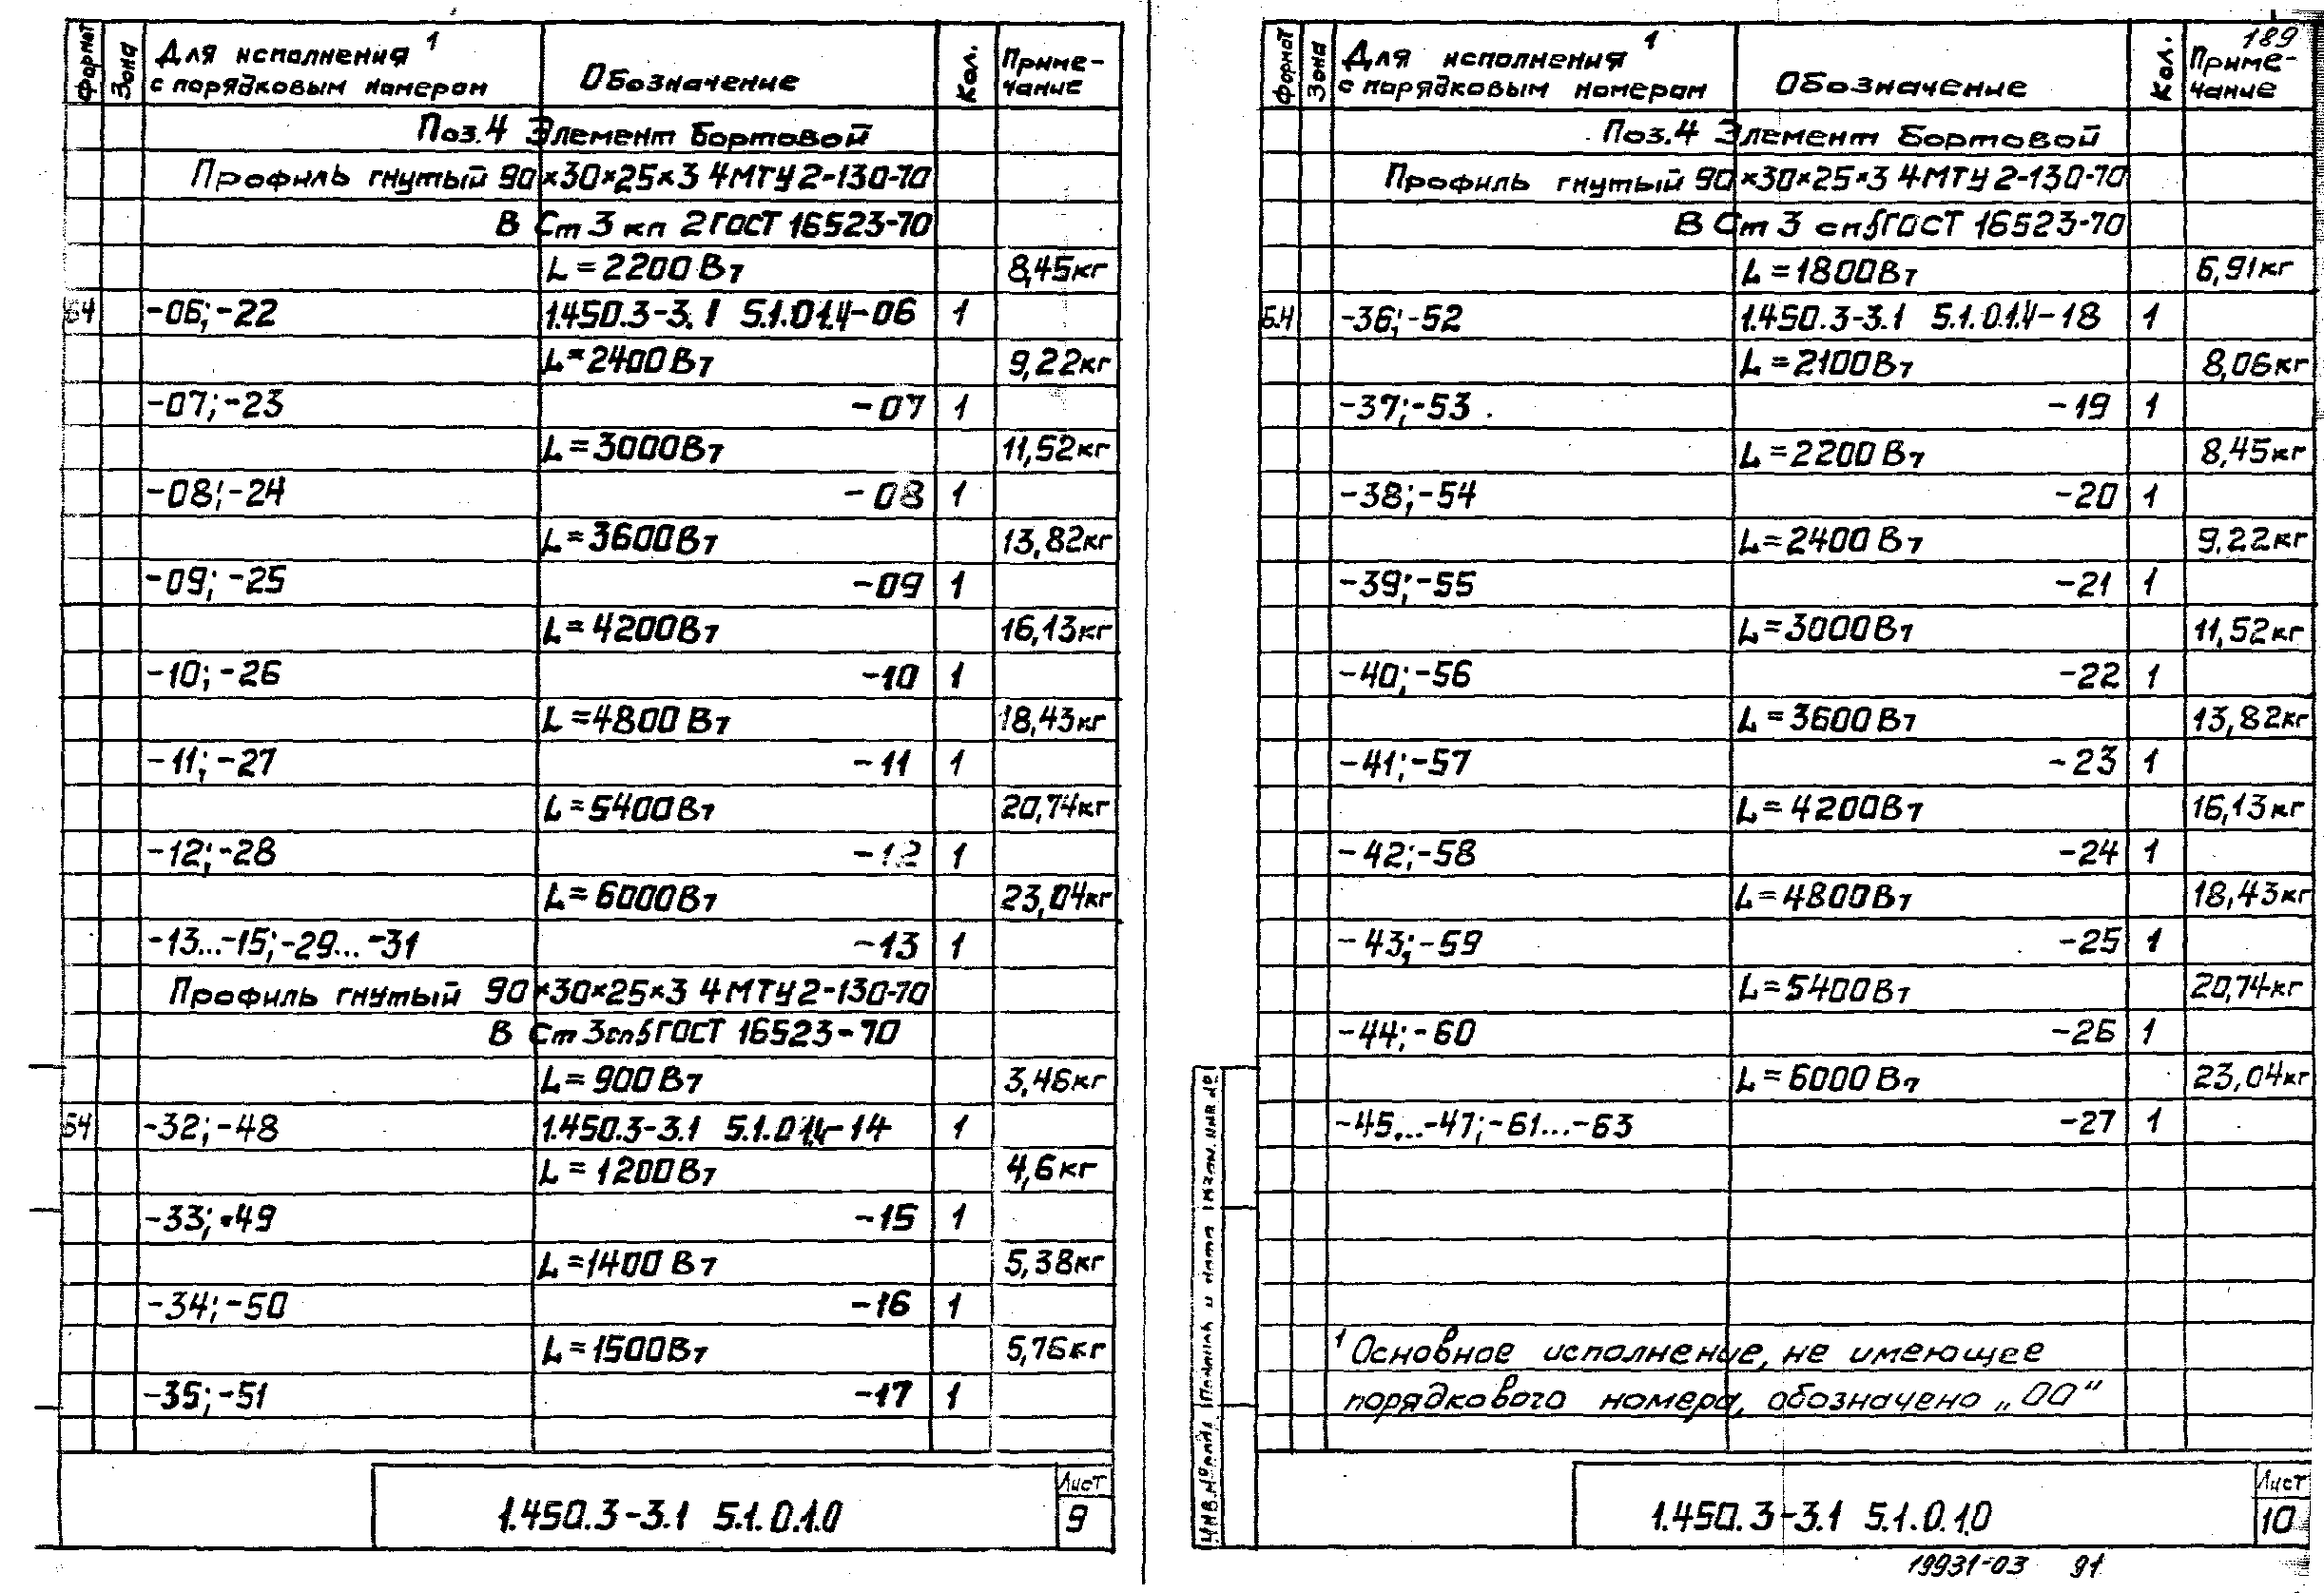 Формат Зона Для исполнения¹ с порядковым номером Обозначение Кол. Приме-чание
Поз.4 Элемент бортовой
Профиль гнутый 90×30×25×3 4МТУ2-130-70
В Ст 3 кп 2 ГОСТ 16523-70
L=2200 Вт 8,45кг
Б4 -06;-22 1.450.3-3.1 5.1.0.1.4-06 1
L=2400Вт 9,22кг
-07;-23 -07 1
L=3000Вт 11,52кг
-08;-24 -08 1
L=3600Вт 13,82кг
-09;-25 -09 1
L=4200Вт 16,13кг
-10;-26 -10 1
L=4800 Вт 18,43кг
-11;-27 -11 1
L=5400Вт 20,74кг
-12;-28 -12 1
L=6000Вт 23,04кг
-13...-15;-29...-31 -13 1
Профиль гнутый 90×30×25×3 4МТУ2-130-70
В Ст 3сп5 ГОСТ 16523-70
L=900 Вт 3,46кг
Б4 -32;-48 1.450.3-3.1 5.1.0.1.4-14 1
L=1200Вт 4,6кг
-33;-49 -15 1
L=1400 Вт 5,38кг
-34;-50 -16 1
L=1500Вт 5,76кг
-35;-51 -17 1
1.450.3-3.1 5.1.0.1.0
Лист
9
189
Формат Зона Для исполнения¹ с порядковым номером Обозначение Кол. Приме-чание
Поз.4 Элемент бортовой
Профиль гнутый 90×30×25×3 4МТУ2-130-70
В Ст 3 сп5 ГОСТ 16523-70
L=1800Вт 6,91кг
Б.4 -36;-52 1.450.3-3.1 5.1.0.1.4-18 1
L=2100Вт 8,06кг
-37;-53 -19 1
L=2200 Вт 8,45кг
-38;-54 -20 1
L=2400 Вт 9.22кг
-39;-55 -21 1
L=3000Вт 11,52кг
-40;-56 -22 1
L=3600Вт 13,82кг
-41;-57 -23 1
L=4200Вт 16,13кг
-42;-58 -24 1
L=4800Вт 18,43кг
-43;-59 -25 1
L=5400Вт 20,74кг
-44;-60 -26 1
L=6000 Вт 23,04кг
-45...-47;-61...-63 -27 1
¹ Основное исполнение, не имеющее
порядкового номера, обозначено „00“
Инв.№подл. Подпись и дата Взам.инв.№
1.450.3-3.1 5.1.0.1.0
Лист
10
19931-03 91